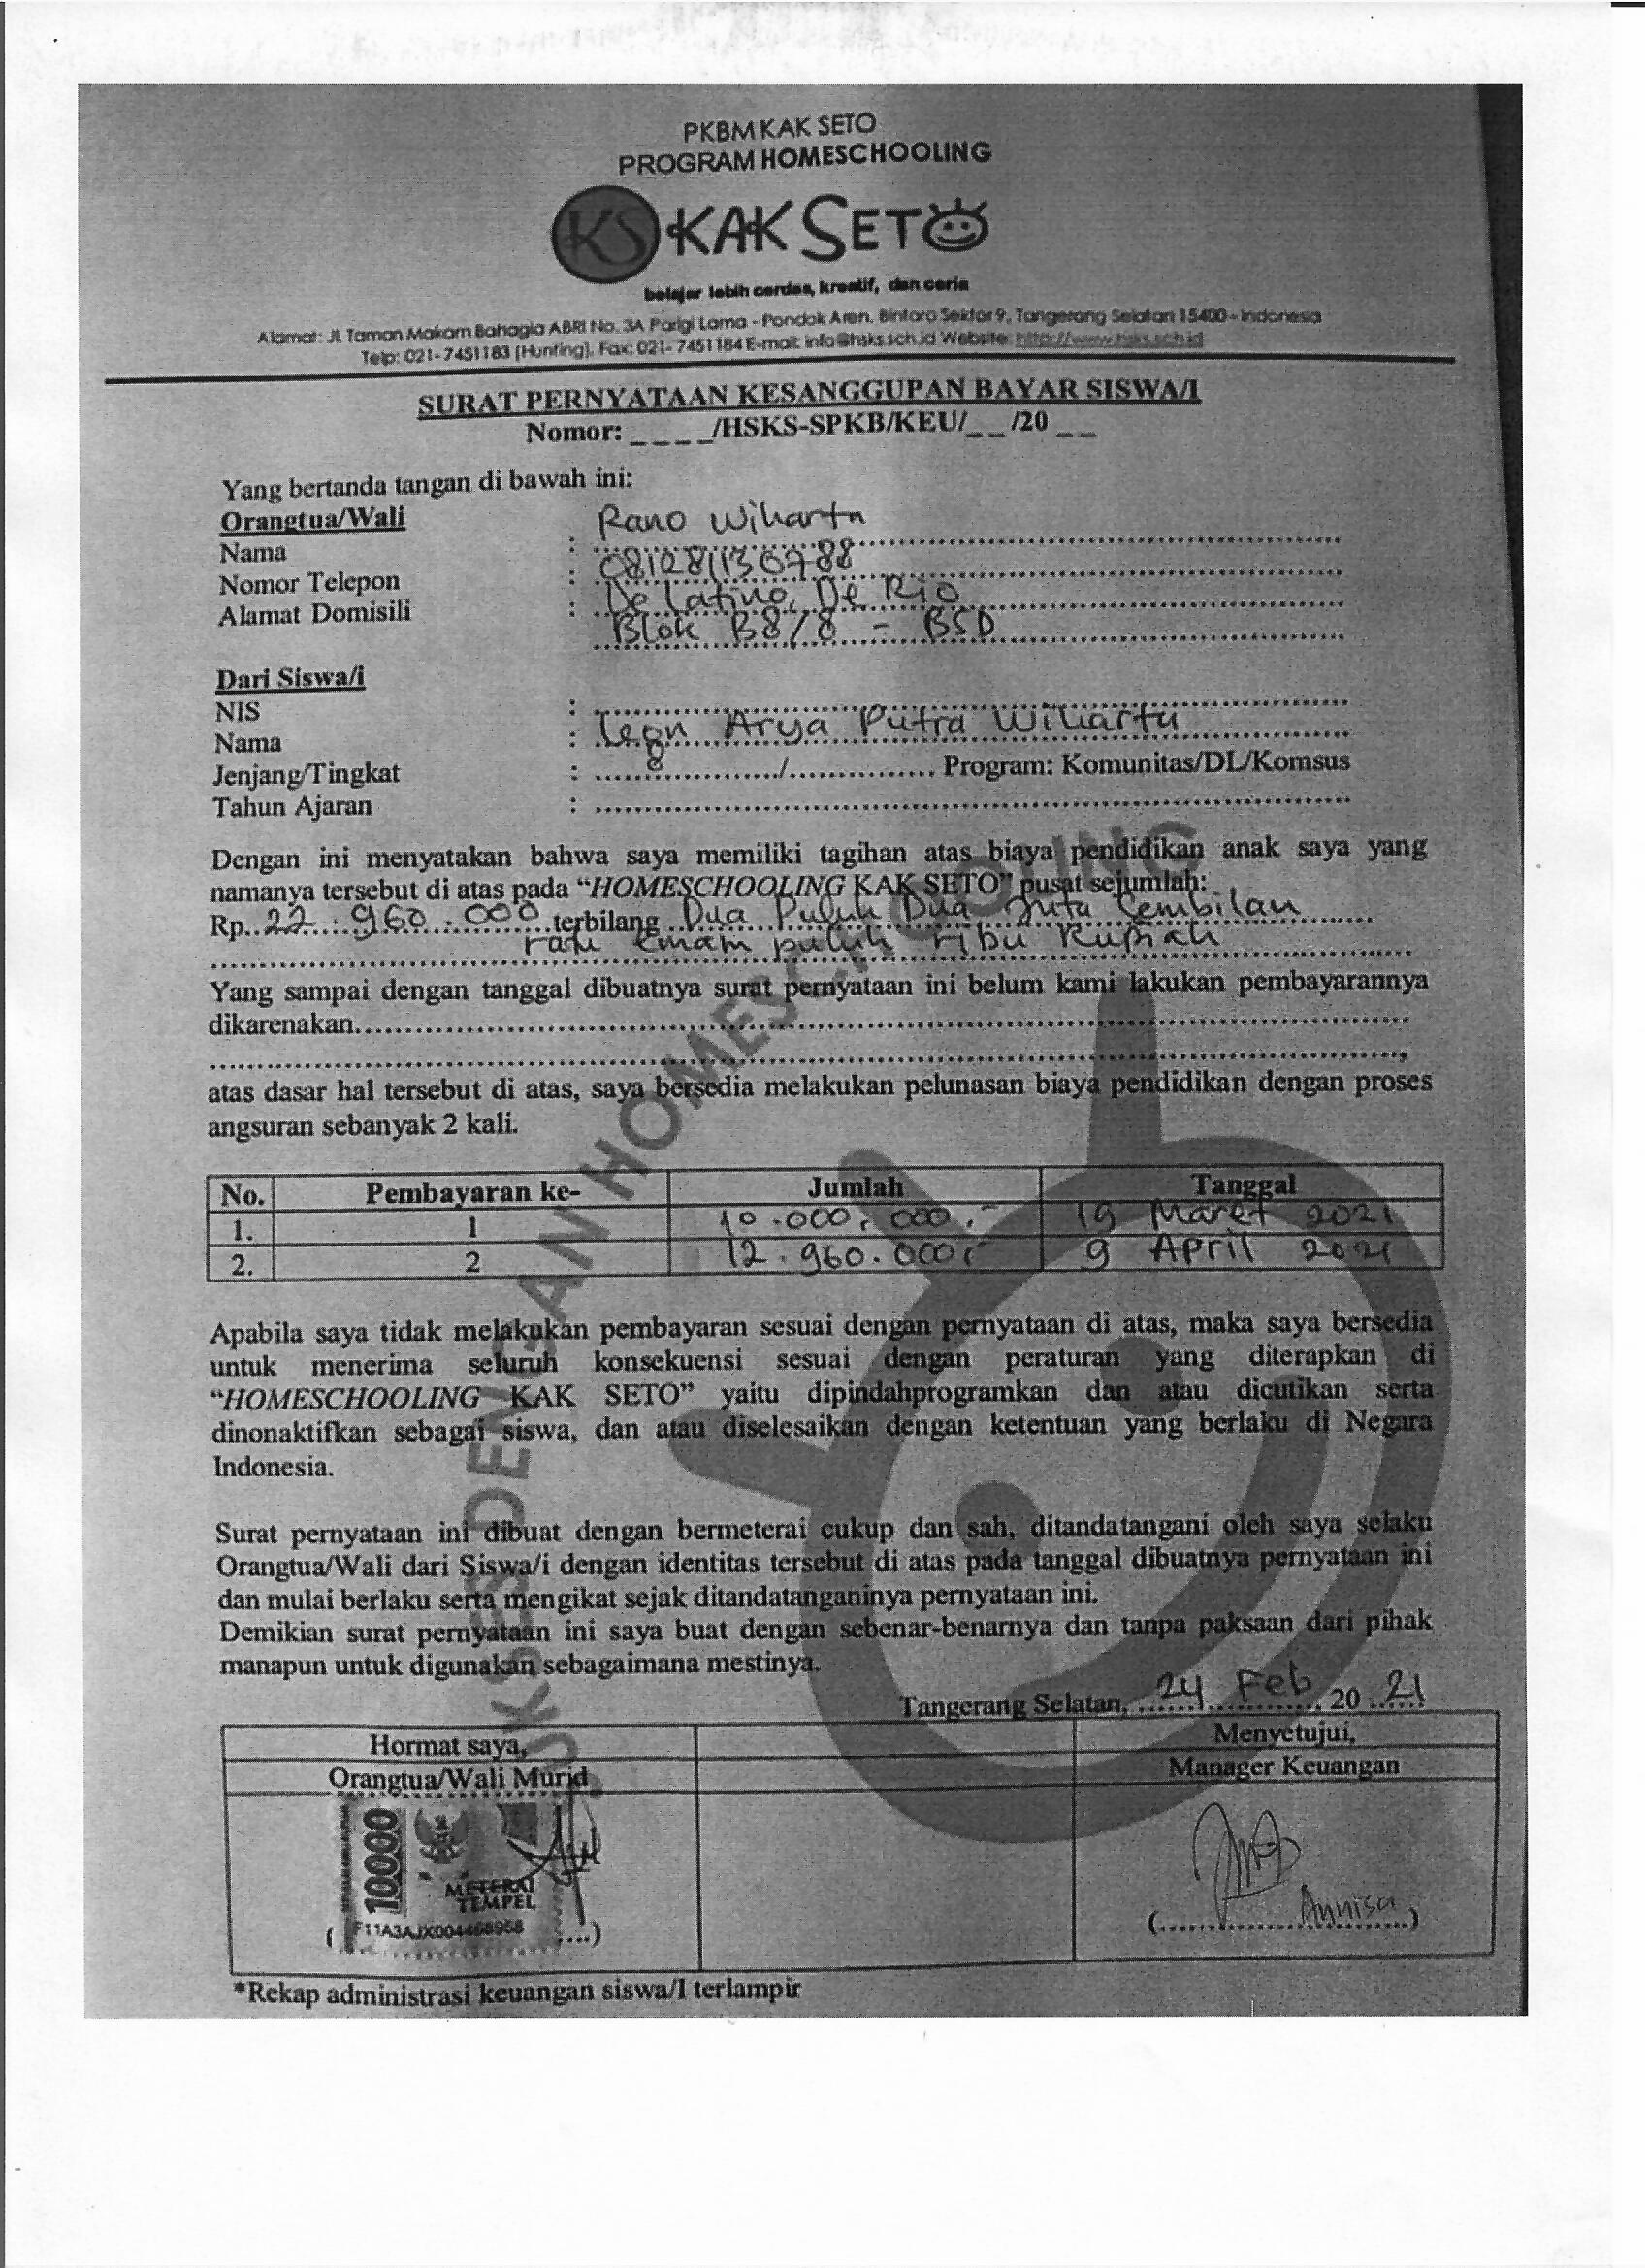 PKBM KAK SETO
PROGRAM HOMESCHOOLING
KS KAK SETO
belajar lebih cerdas, kreatif, dan ceria
Alamat: Jl. Taman Makam Bahagia ABRI No. 3A Parigi Lama - Pondok Aren, Bintaro Sektor 9, Tangerang Selatan 15400 - Indonesia
Telp: 021- 7451183 (Hunting), Fax: 021- 7451184 E-mail: info@hsks.sch.id Website: http://www.hsks.sch.id
SURAT PERNYATAAN KESANGGUPAN BAYAR SISWA/I
Nomor: _ _ _ _/HSKS-SPKB/KEU/_ _ /20 _ _
Yang bertanda tangan di bawah ini:
Orangtua/Wali
Nama : Rano Wiharta
Nomor Telepon : 081281130788
Alamat Domisili : De Latino, De Rio
Blok B8/8 - BSD
Dari Siswa/i
NIS :
Nama : Arya Putra Wiharta
Jenjang/Tingkat : 8 / Program: Komunitas/DL/Komsus
Tahun Ajaran :
Dengan ini menyatakan bahwa saya memiliki tagihan atas biaya pendidikan anak saya yang
namanya tersebut di atas pada “HOMESCHOOLING KAK SETO” pusat sejumlah:
Rp. 22.960.000 terbilang Dua Puluh Dua Juta Sembilan
ratu enam puluh ribu Rupiah
Yang sampai dengan tanggal dibuatnya surat pernyataan ini belum kami lakukan pembayarannya
dikarenakan
atas dasar hal tersebut di atas, saya bersedia melakukan pelunasan biaya pendidikan dengan proses
angsuran sebanyak 2 kali.
No. Pembayaran ke- Jumlah Tanggal
1. 1 10.000.000,- 19 Maret 2021
2. 2 12.960.000,- 9 April 2021
Apabila saya tidak melakukan pembayaran sesuai dengan pernyataan di atas, maka saya bersedia
untuk menerima seluruh konsekuensi sesuai dengan peraturan yang diterapkan di
“HOMESCHOOLING KAK SETO” yaitu dipindahprogramkan dan atau dicutikan serta
dinonaktifkan sebagai siswa, dan atau diselesaikan dengan ketentuan yang berlaku di Negara
Indonesia.
Surat pernyataan ini dibuat dengan bermeterai cukup dan sah, ditandatangani oleh saya selaku
Orangtua/Wali dari Siswa/i dengan identitas tersebut di atas pada tanggal dibuatnya pernyataan ini
dan mulai berlaku serta mengikat sejak ditandatanganinya pernyataan ini.
Demikian surat pernyataan ini saya buat dengan sebenar-benarnya dan tanpa paksaan dari pihak
manapun untuk digunakan sebagaimana mestinya.
Tangerang Selatan, 24 Feb 20 21
Hormat saya, Menyetujui,
Orangtua/Wali Murid Manager Keuangan
10000
METERAI
TEMPEL
F11A3AJX004468958
(....) (Annisa)
*Rekap administrasi keuangan siswa/I terlampir